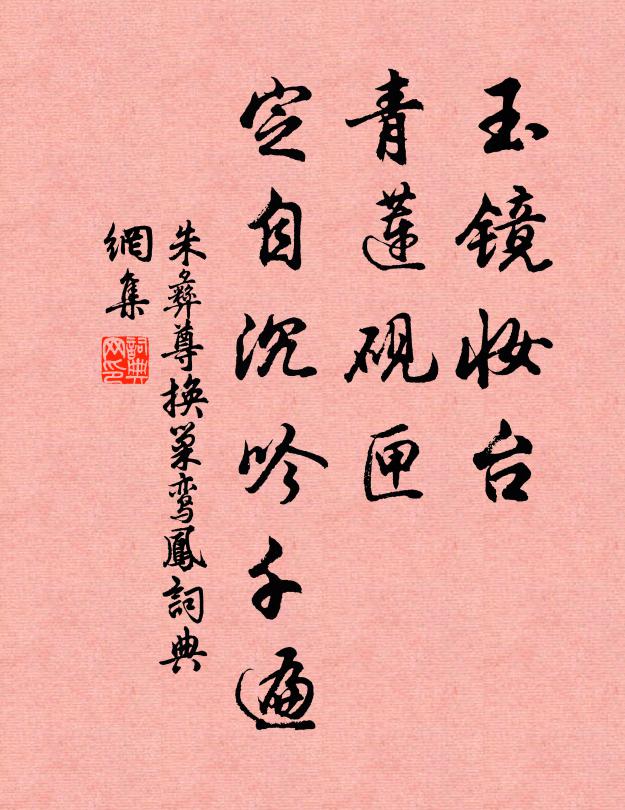 玉镜妆台
青莲砚匣
定自沉吟千遍
朱彝尊换巢鸾鳳詞典
網集
詞典
网印